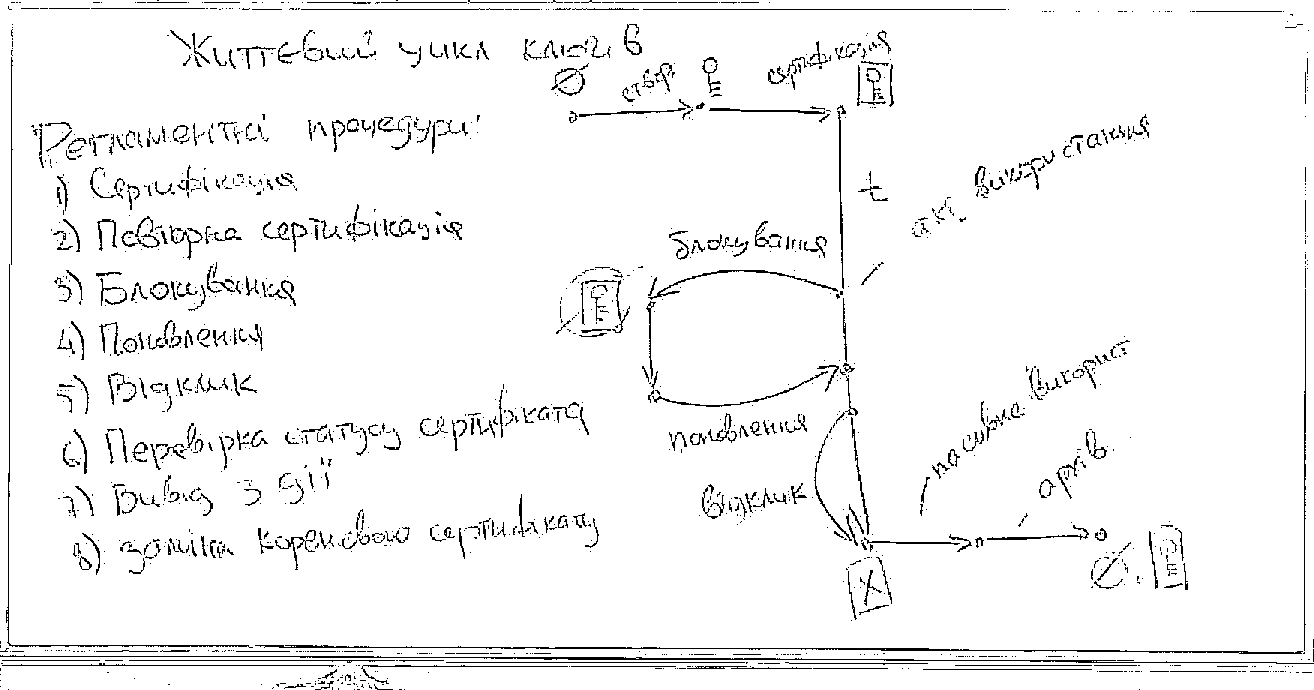 Життєвий цикл ключів
Регламентні процедури:
1) Сертифікація
2) Повторна сертифікація
3) Блокування
4) Поновлення
5) Відклик
6) Перевірка статусу сертифіката
7) Вивід з дії
8) заміна кореневого сертифікату
∅
створ.
сертифікація
t
акт. використання
блокування
поновлення
відклик
X
пасивне використ
архів.
∅.